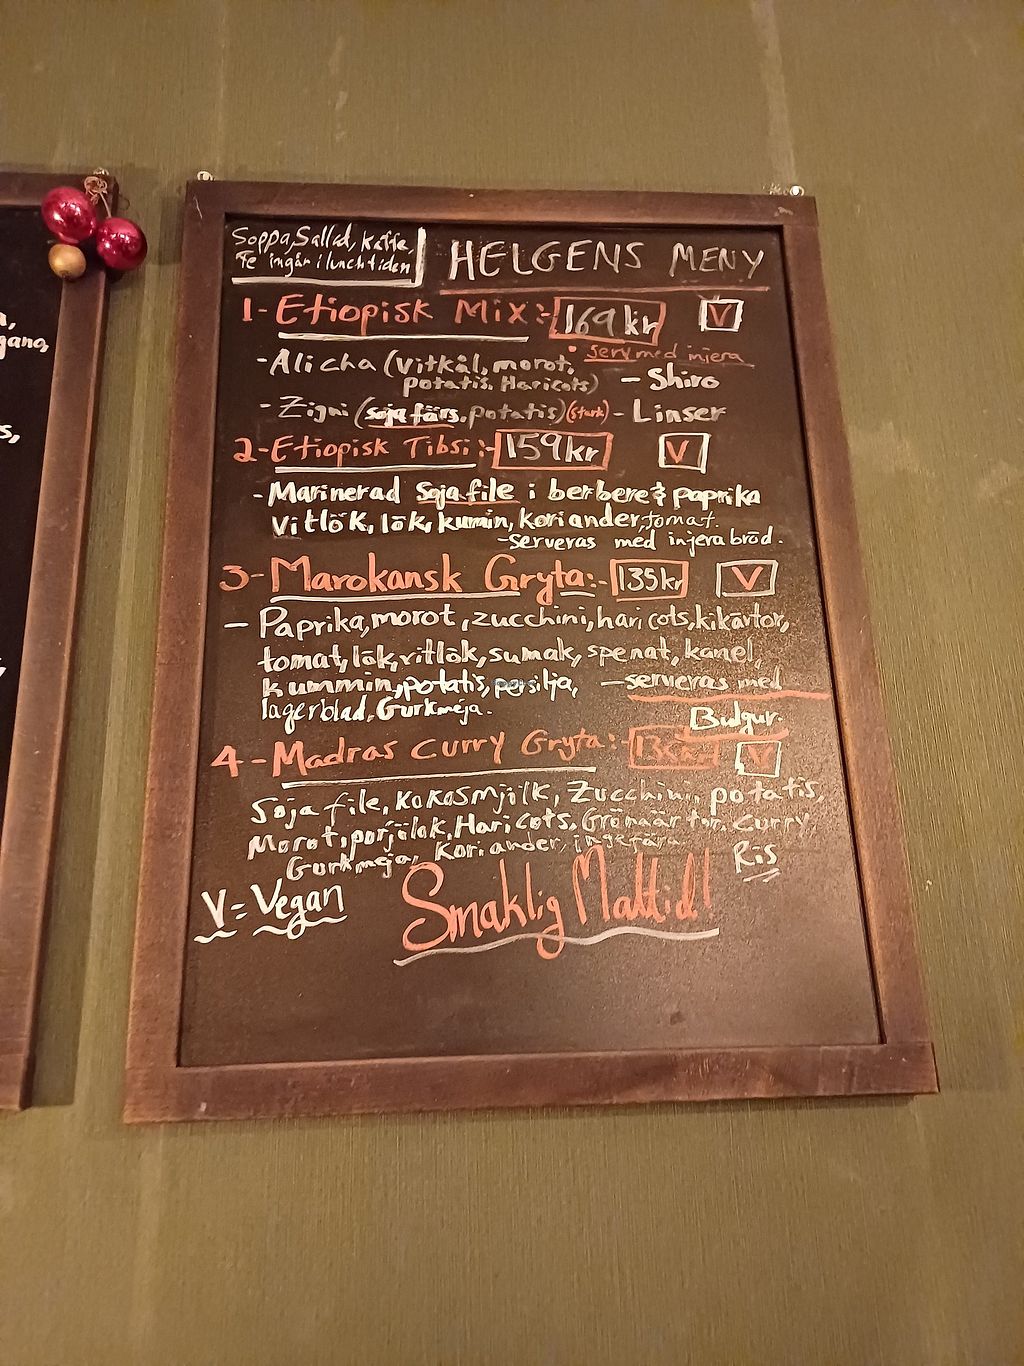 Soppa, Sallad, Kaffe,
Te ingår i lunchtiden
HELGENS MENY
1- Etiopisk Mix:- 169 kr V
• serv med injera
- Alicha (Vitkål, morot,
potatis. Haricots) - Shiro
- Zigni (soja färs, potatis) (stark) - Linser
2- Etiopisk Tibsi:- 159kr V
- Marinerad Soja file i berbere & paprika
Vitlök, lök, kumin, koriander, tomat.
- serveras med injera bröd.
3- Marokansk Gryta:- 135kr V
- Paprika, morot, zucchini, hari cots, kikärtor,
tomat, lök, vitlök, sumak, spenat, kanel,
kummin, potatis, persilja, - serveras med
lagerblad, Gurkmeja. Bulgur.
4- Madras Curry Gryta:- V
Soja file, KOKOSmjölk, Zucchini, potatis,
Morot, porjölok, Hari cots, Gronäär tor, curry
Gurkmeja, Koriander, ingefära Ris
V = Vegan Smaklig Måltid!
gano,
s,